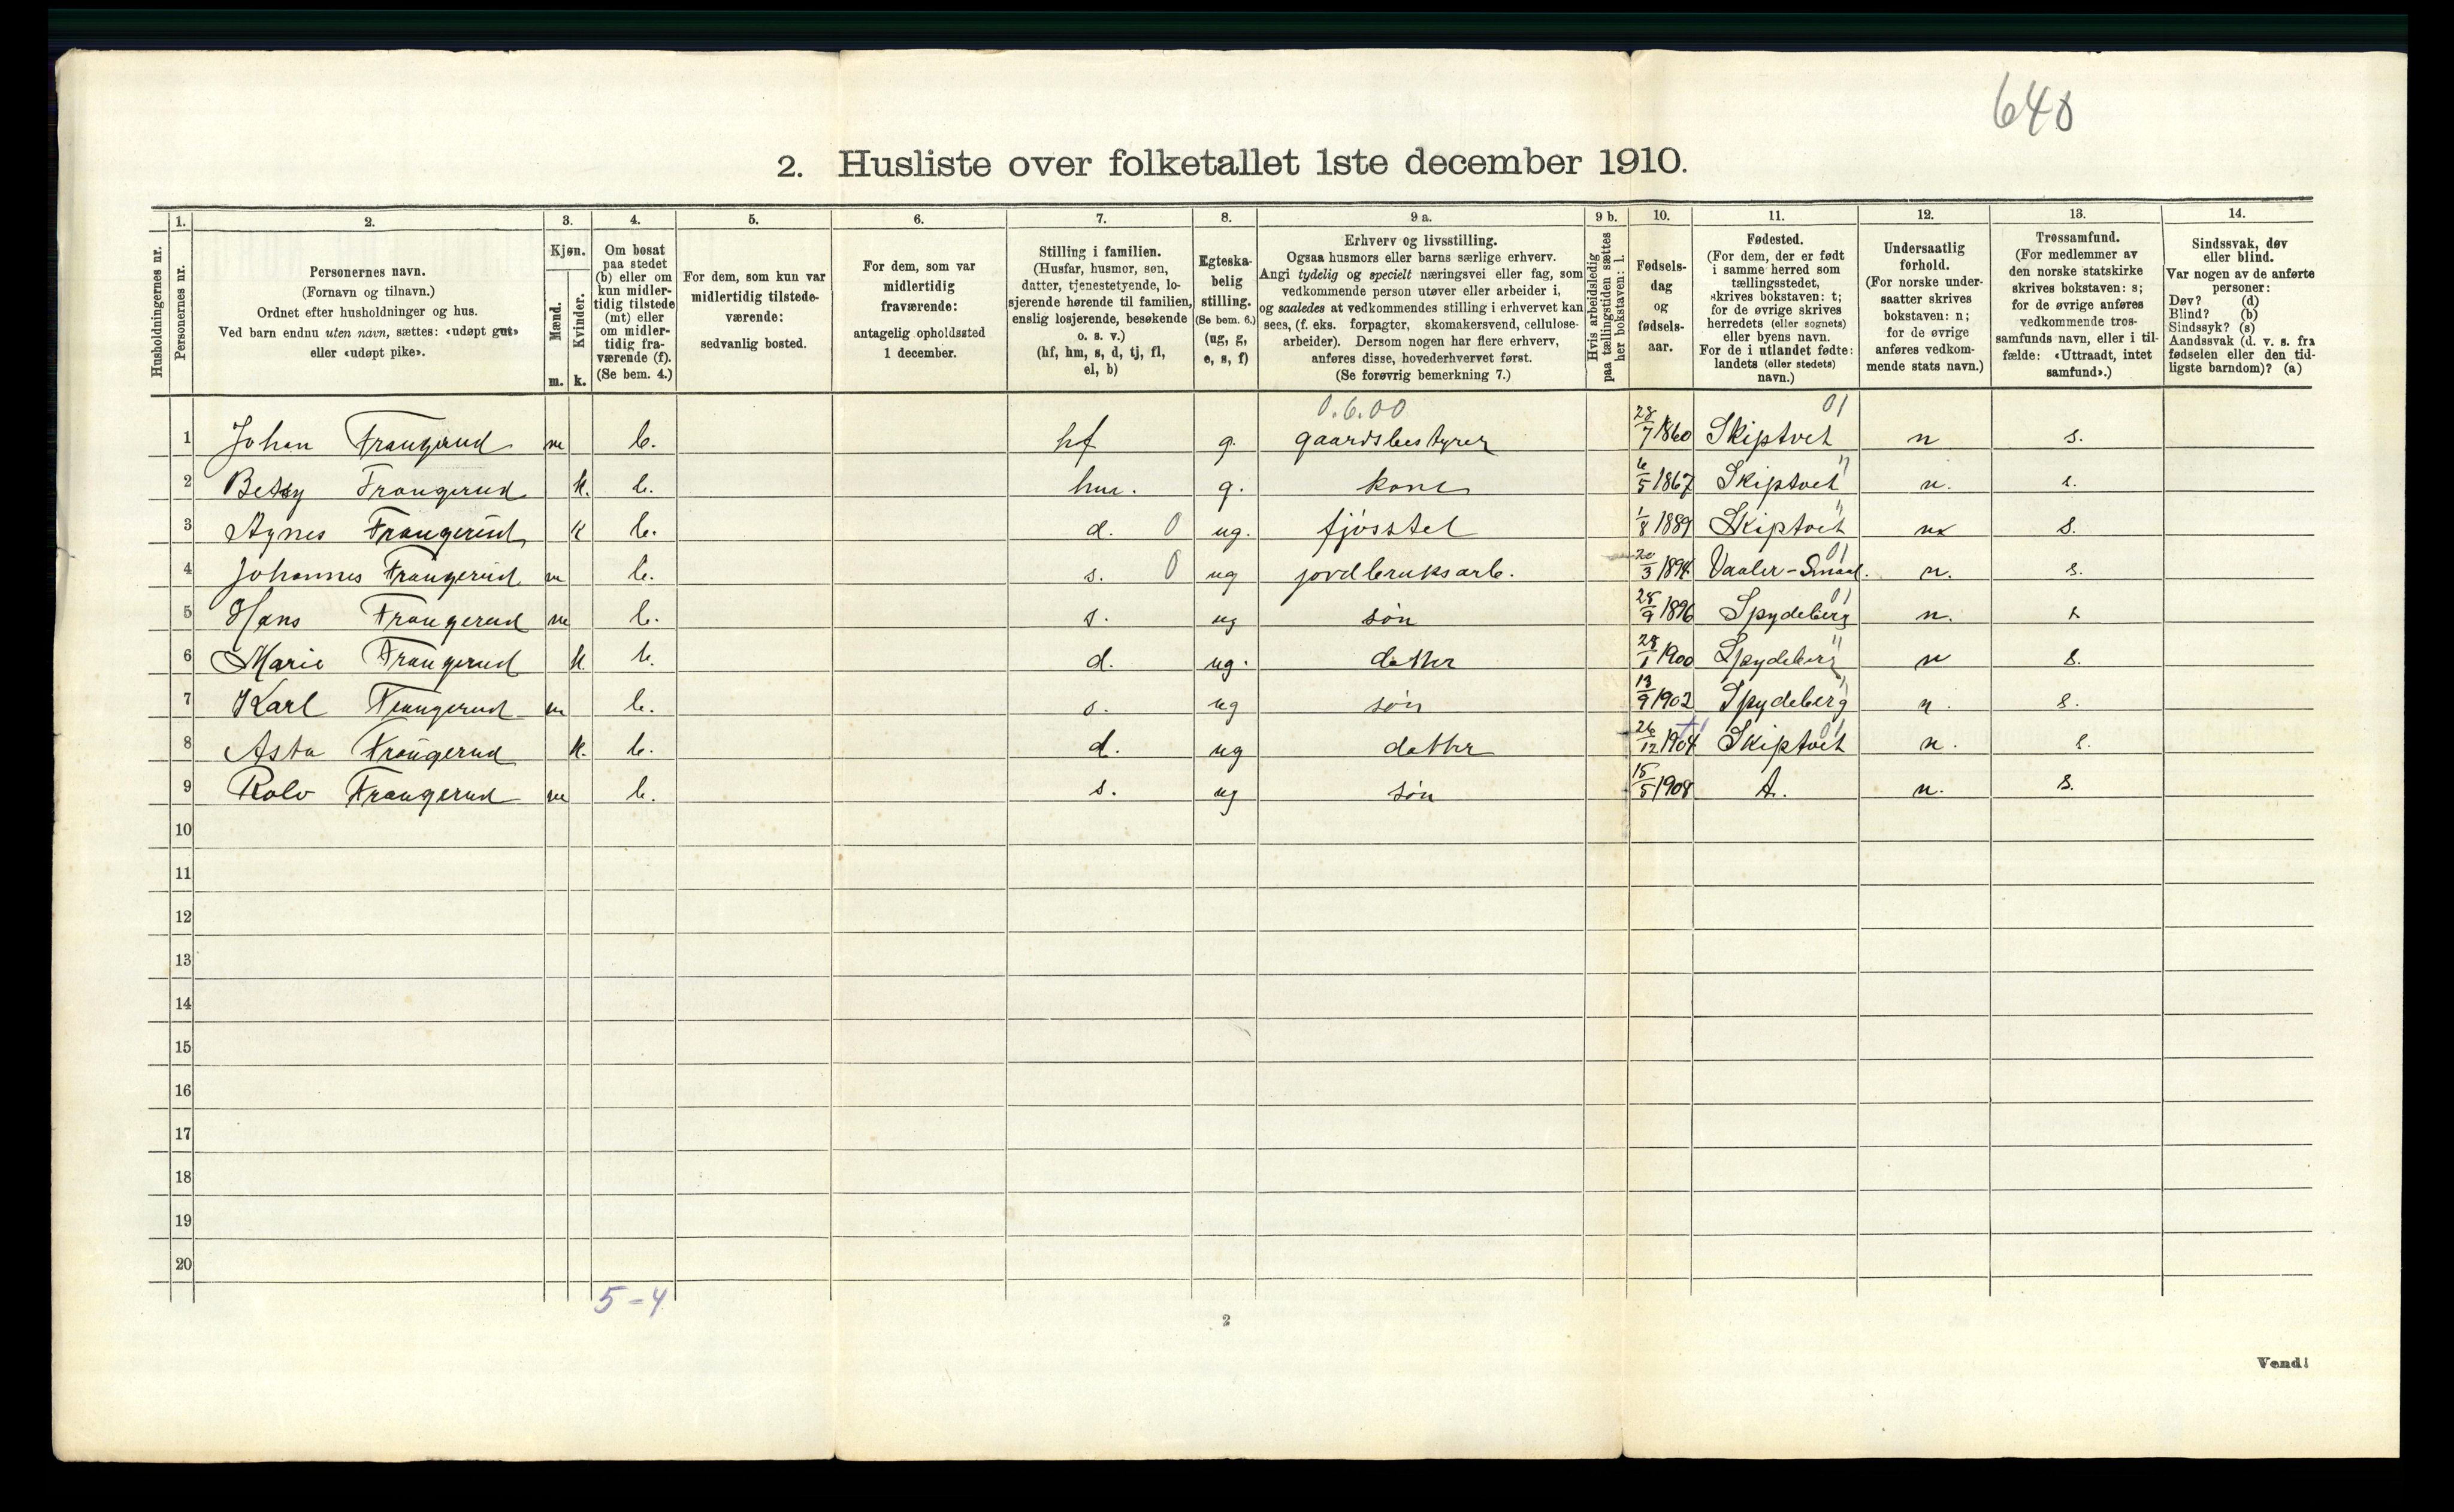 640
2. Husliste over folketallet 1ste december 1910.
1. 2. 3. 4. 5. 6. 7. 8. 9 a. 9 b. 10. 11. 12. 13. 14.
Husholdningernes nr.
Personernes nr.
Personernes navn.
(Fornavn og tilnavn.)
Ordnet efter husholdninger og hus.
Ved barn endnu uten navn, sættes: «udøpt gut»
eller «udøpt pike».
Kjøn.
Mænd.
m.
Kvinder.
k.
Om bosat
paa stedet
(b) eller om
kun midler-
tidig tilstede
(mt) eller
om midler-
tidig fra-
værende (f).
(Se bem. 4.)
For dem, som kun var
midlertidig tilstede-
værende:
sedvanlig bosted.
For dem, som var
midlertidig
fraværende:
antagelig opholdssted
1 december.
Stilling i familien.
(Husfar, husmor, søn,
datter, tjenestetyende, lo-
sjerende hørende til familien,
enslig losjerende, besøkende
o. s. v.)
(hf, hm, s, d, tj, fl,
el, b)
Egteska-
belig
stilling.
(Se bem. 6.)
(ug, g,
e, s, f)
Erhverv og livsstilling.
Ogsaa husmors eller barns særlige erhverv.
Angi tydelig og specielt næringsvei eller fag, som
vedkommende person utøver eller arbeider i,
og saaledes at vedkommendes stilling i erhvervet kan
sees, (f. eks. forpagter, skomakersvend, cellulose-
arbeider). Dersom nogen har flere erhverv,
anføres disse, hovederhvervet først.
(Se forøvrig bemerkning 7.)
Hvis arbeidsledig
paa tællingstiden sættes
her bokstaven: l.
Fødsels-
dag
og
fødsels-
aar.
Fødested.
(For dem, der er født
i samme herred som
tællingsstedet,
skrives bokstaven: t;
for de øvrige skrives
herredets (eller sognets)
eller byens navn.
For de i utlandet fødte:
landets (eller stedets)
navn.)
Undersaatlig
forhold.
(For norske under-
saatter skrives
bokstaven: n;
for de øvrige
anføres vedkom-
mende stats navn.)
Trossamfund.
(For medlemmer av
den norske statskirke
skrives bokstaven: s;
for de øvrige anføres
vedkommende tros-
samfunds navn, eller i til-
fælde: «Uttraadt, intet
samfund».)
Sindssvak, døv
eller blind.
Var nogen av de anførte
personer:
Døv? (d)
Blind? (b)
Sindssyk? (s)
Aandssvak (d. v. s. fra
fødselen eller den tid-
ligste barndom)? (a)
0.6.00 01
1 Johan Frangerud m b. hf g. gaardsbestyrer 28/7 1860 Skiptvet n s.
2 Betsy Frangerud k. b. hm. g. kone 6/5 1867 Skiptvet " n. s.
3 Agnes Frangerud k b. d. 0 ug. fjøsstel 1/8 1889 Skiptvet " n s.
4 Johannes Frangerud m b. s. 0 ug jordbruksarb. 20/3 1894 Vaaler-Smaal. 01 n. s.
5 Hans Frangerud m b. s. ug søn 28/9 1896 Spydeberg 01 n. s
6 Marie Frangerud k. b. d. ug. datter 28/1 1900 Spydeberg " n s.
7 Karl Frangerud m b. s. ug søn 13/9 1902 Spydeberg " n. s.
8 Asta Frangerud k. b. d. ug datter 26/12 1904 Skiptvet 01 n. s.
9 Rolv Frangerud m b. s. ug søn 15/5 1908 t. n. s.
10
11
12
13
14
15
16
17
18
19
20
5-4
2
Vend!